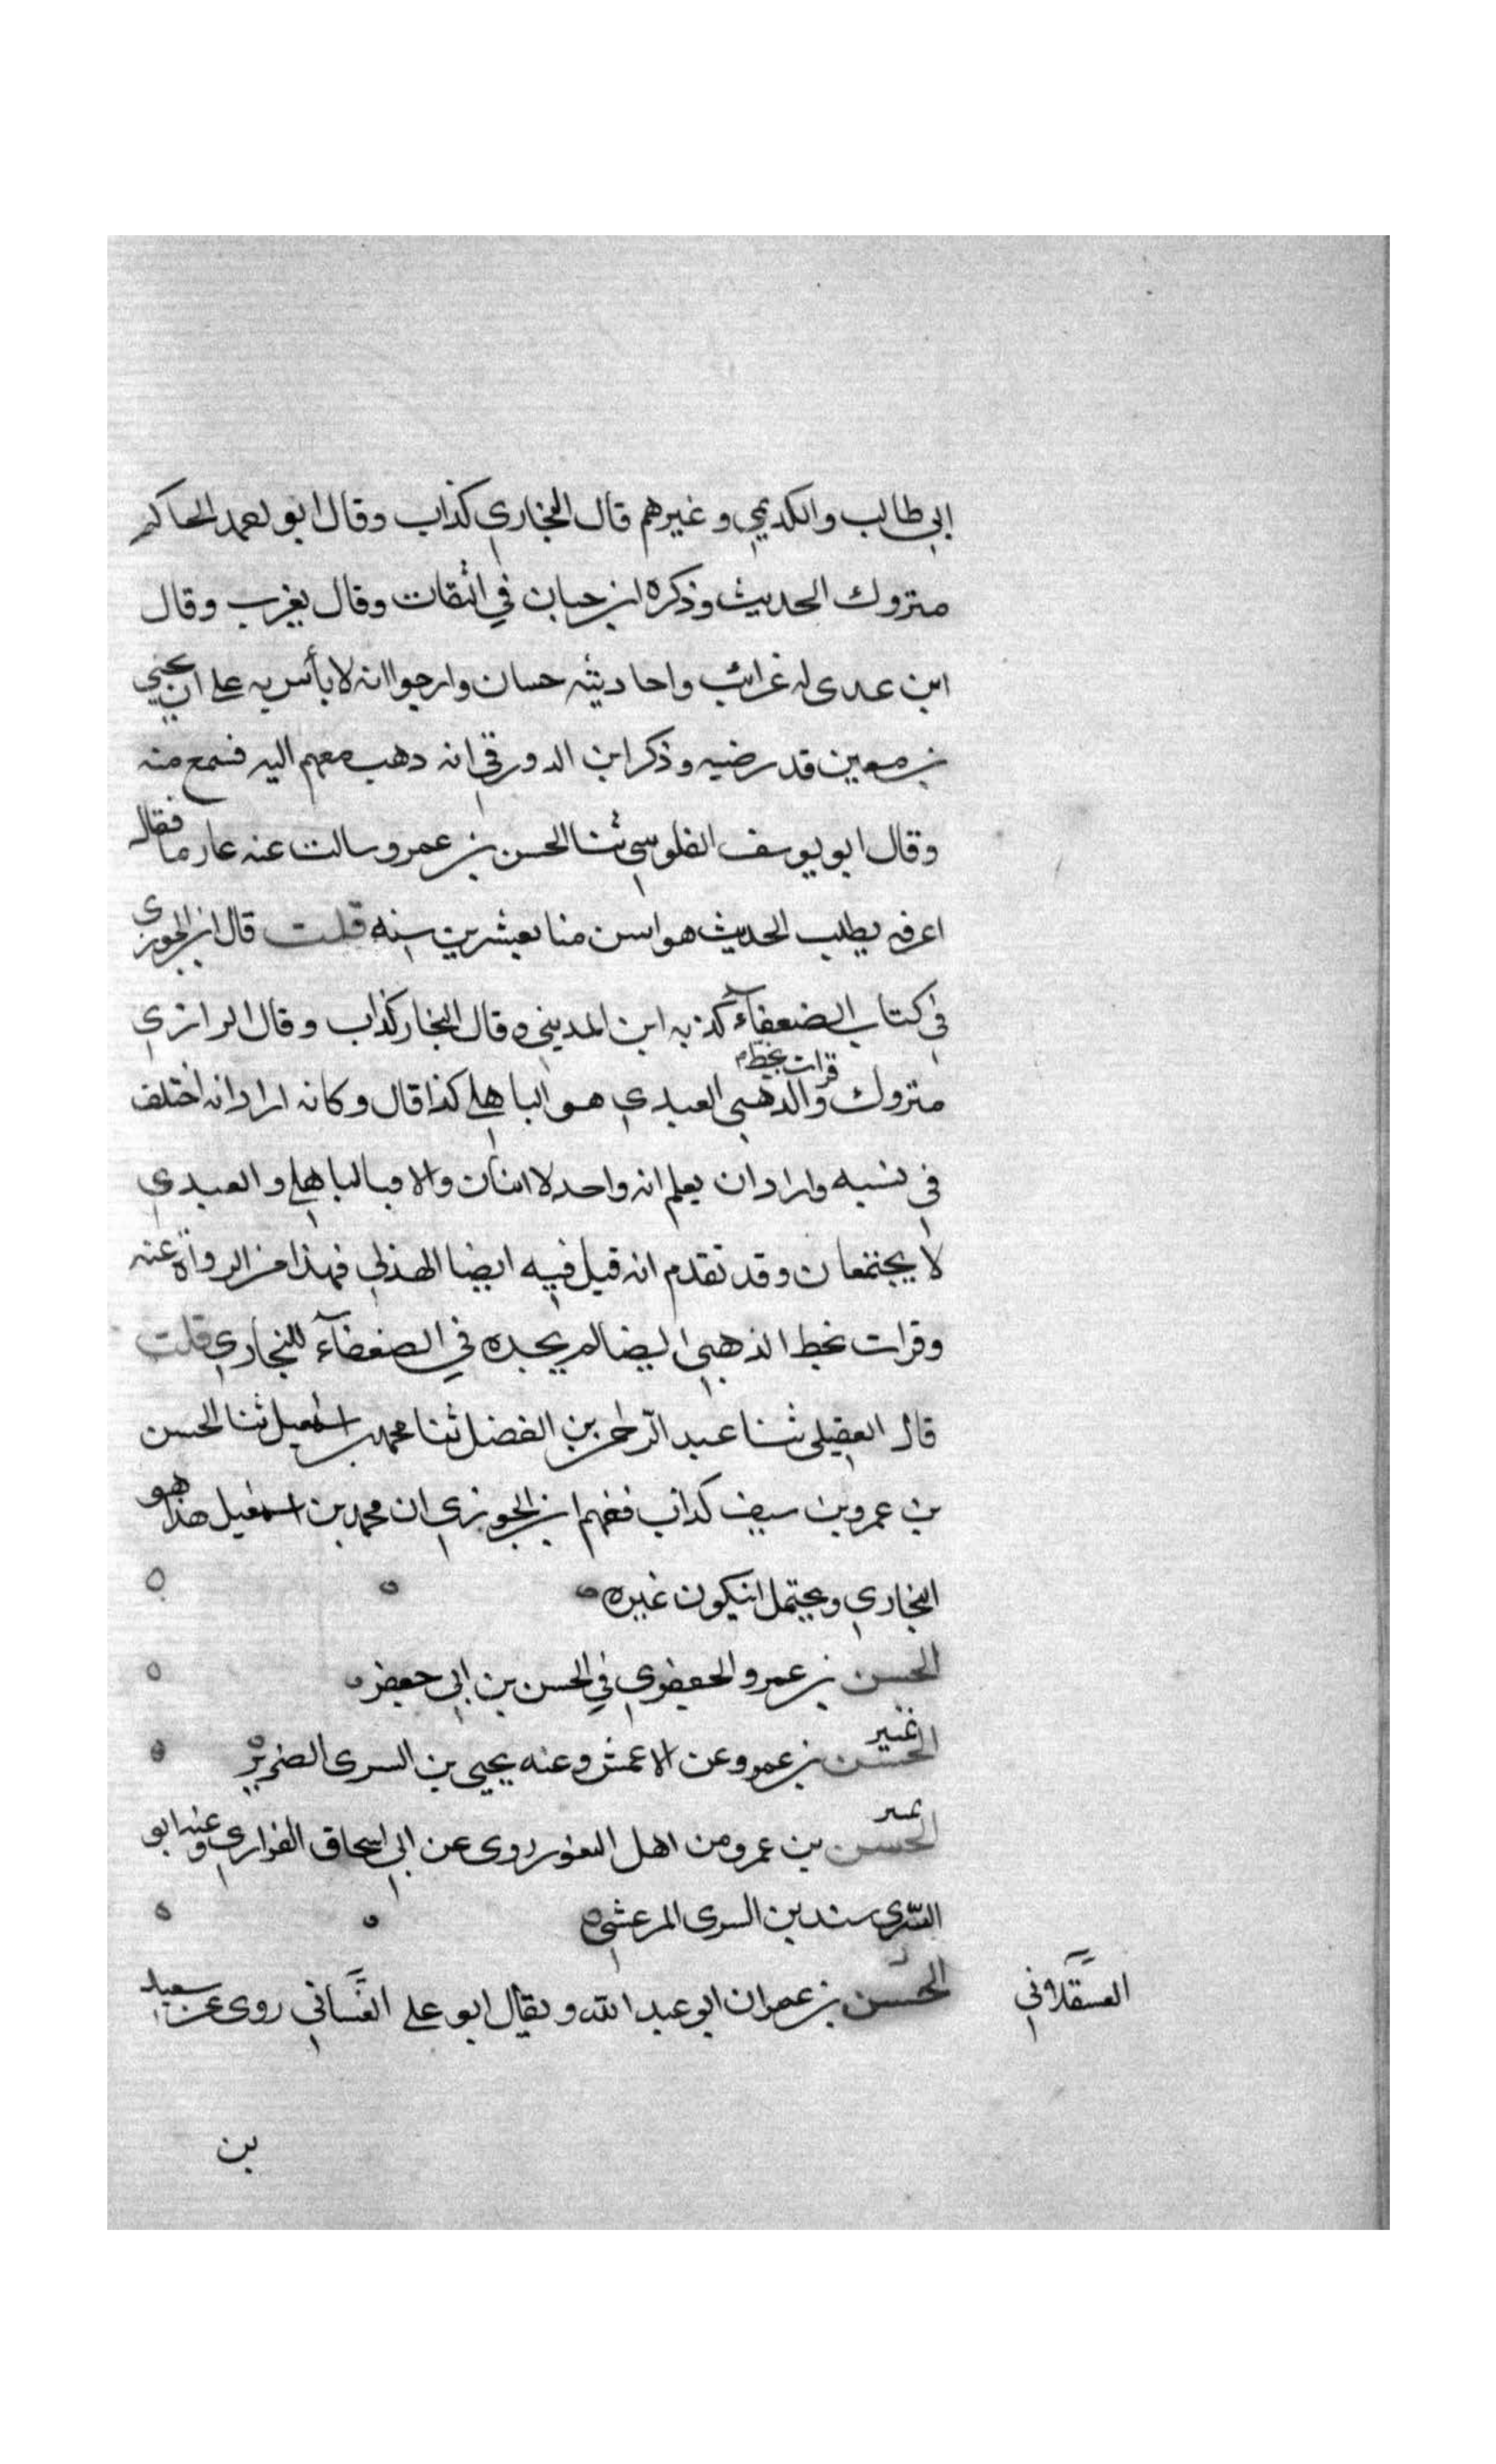 ابي طالب والكديمي وغيرهم قال البخاري كذاب وقال ابو احمد الحاكم
متروك الحديث وذكره ابن حبان في الثقات وقال يغرب وقال
ابن عدى له غرائب واحاديثه حسان وارجوا انه لا بأس به على ان يحيى
بن معين قد رضيه وذكر ابن الدورقي انه دهب معهم اليه فسمع منه
وقال ابو يوسف القلوسي ثنا الحسن بن عمرو سالت عنه عارما فقال
اعرفه يطلب الحديث هو اسن منا بعشرين سنه قلت قال ابن الجوزي
في كتاب الضعفآء كذبه ابن المديني وقال البخار كذاب وقال الرازي
متروك وقرات بخط الذهبي العبدي هو الباهلي كذا قال وكانه اراد انه اختلف
في نسبه واراد ان يعلم انه واحد لا اثنان والا فبالباهلي والعبدي
لا يجتمعان وقد تقدم انه قيل فيه ايضا الهذلي فهذا من الرواة عنه
وقرات بخط الذهبي ايضا لم يجده في الضعفآء للبخاري قلت
قال العقيلي ثنا عبد الرحمن بن الفضل ثنا محمد بن اسمعيل ثنا الحسن
بن عمرو بن سيف كذاب ففهم ابن الجوزي ان محمد بن اسمعيل هذا هو
البخاري ويحتمل انيكون غيره
الحسن بن عمرو الجعفري في الحسن بن ابي جعفر
تمييز الحسن بن عمرو عن الاعمش وعنه يحيى بن السرى الضرير
تمييز الحسن بن عمرو من اهل الثغور روى عن ابي اسحاق الفزاري وعنه ابو
السّري سند بن السرى المرعشي
الحسن بن عمران ابو عبد الله ويقال ابو علي العسقلاني روى عن سعيد
العسقلاني
بن